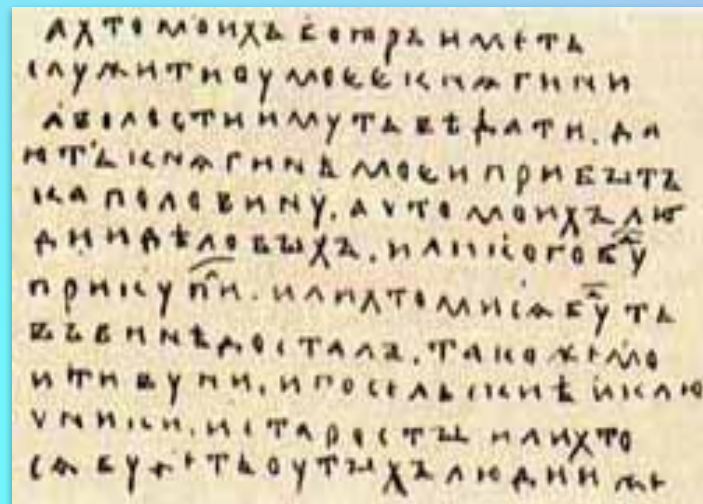 а хто моихъ бояръ иметь
служити оу моеє кнѧгини
а волости имуть вѣдати. да
ють кнѧгинѣ моєи прибытъ
ка половину. а что моихъ лю
дии дѣловыхъ. или кого бу
прикупи. или хто ми сѧ буть
въ винѣ досталъ. тако же мо
и тивуни. и посельскиѣ и клю
чники. и старосты или хто
сѧ будеть оу тыхъ людии же